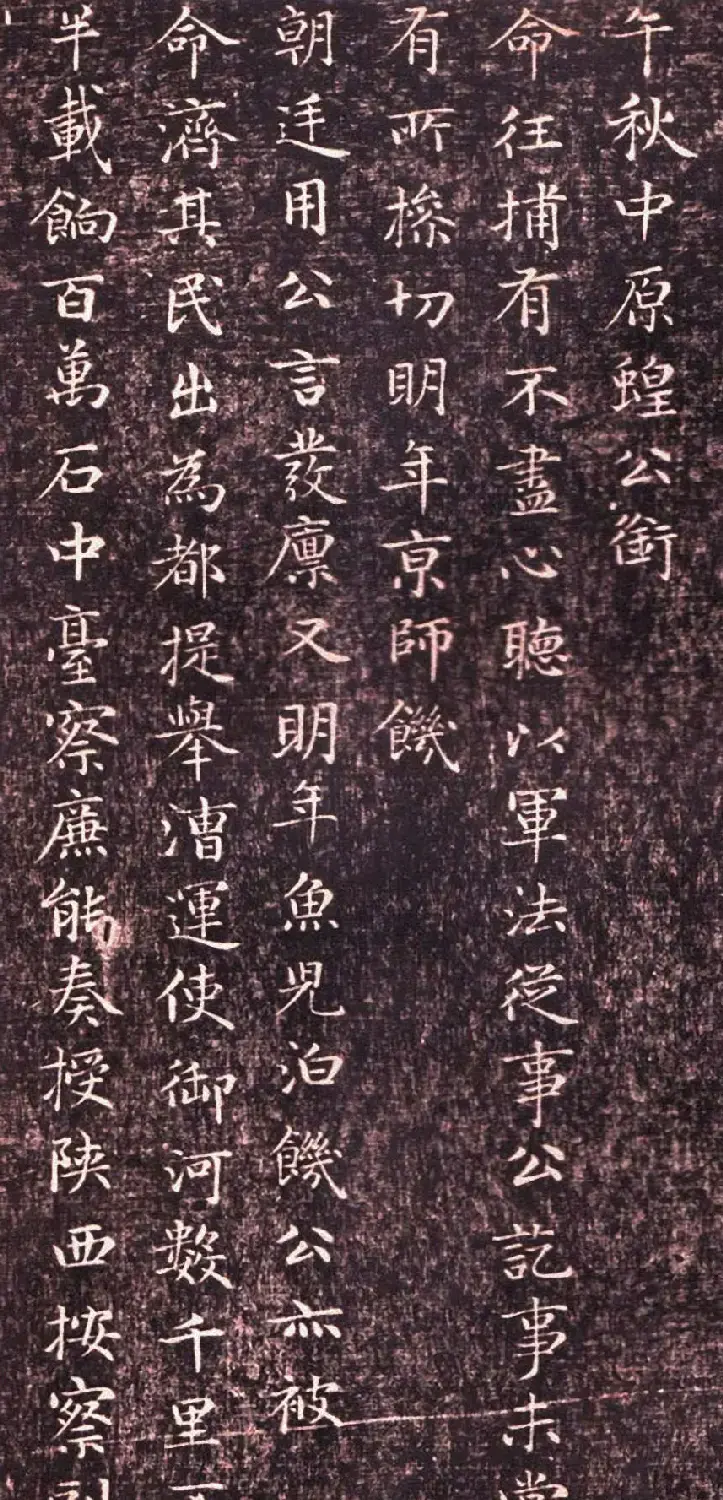 午秋中原蝗公銜
命往捕有不盡心聽以軍法從事公訖事未
有所搽切明年京師饑
朝廷用公言發廪又明年魚児泊饑公亦被
命濟其民出為都提舉漕運使御河數千里
半載餉百萬石中臺察廉能奏授陝西按察